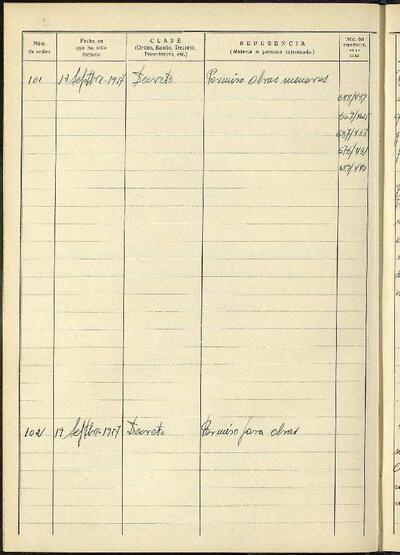 Núm. de orden
Fecha en que ha sido dictado
CLASE
(Orden, Bando, Decreto, Providencia, etc.)
REFERENCIA
(Materia o persona interesada)
Núm. del expediente, en su caso
101 13 Septbre. 1957 Decreto Permiso obras menores
102 19 Septbre 1957 Decreto Permiso para obras